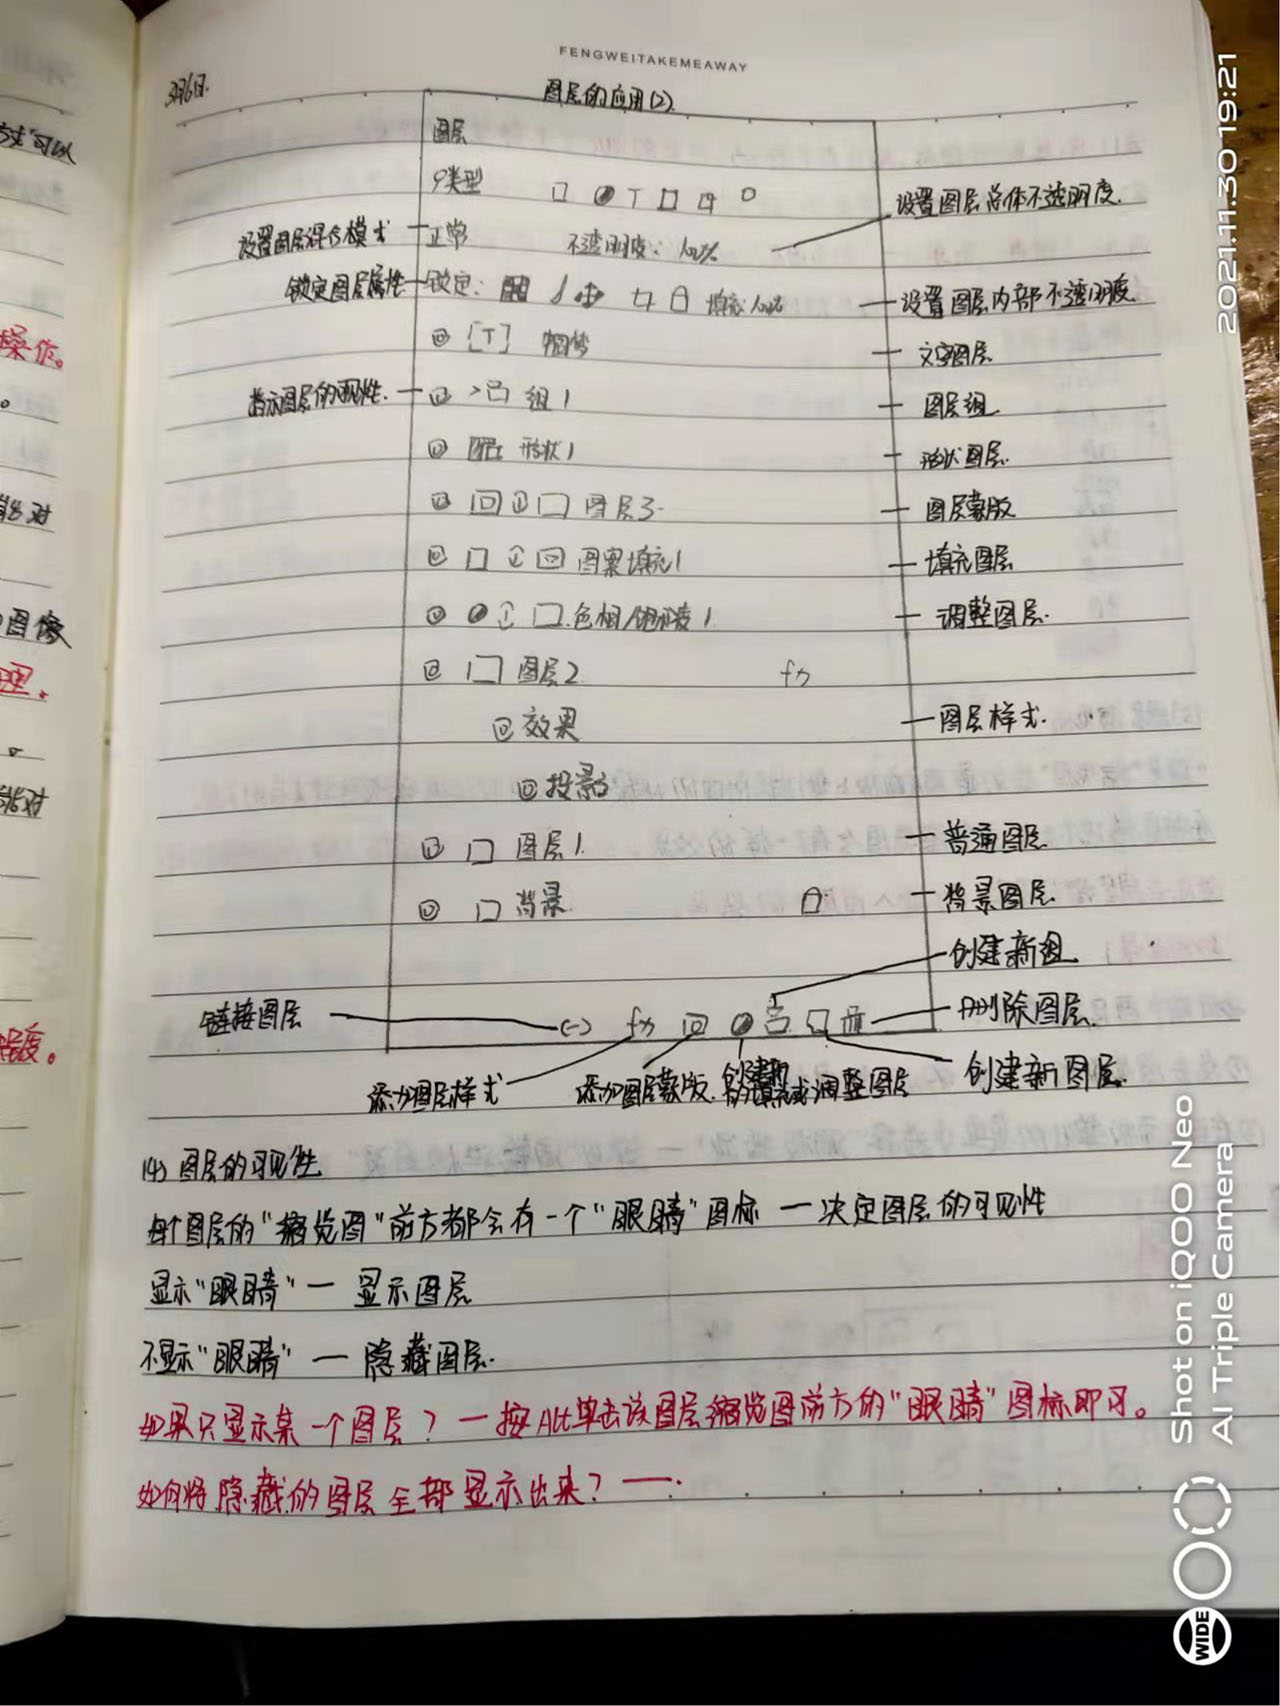 FENGWEITAKEMEAWAY
3月6日.
图层的应用(2)
图层
ρ类型 T
设置图层总体不透明度.
设置图层混合模式 正常 不透明度: 100%
锁定图层属性 锁定: 填充:100% 设置图层内部不透明度.
[T] 文字图层
指示图层的可见性. > 组1 图层组
形状1 形状图层
图层3 图层蒙版
图案填充1 填充图层
色相/饱和度1 调整图层.
图层2 fx
效果 图层样式.
投影
图层1 普通图层
背景 背景图层
创建新组
链接图层 fx 删除图层
添加图层样式 添加图层蒙版. 创建新的填充或调整图层 创建新图层.
(4) 图层的可见性
每个图层的“缩览图”前方都会有一个“眼睛”图标 — 决定图层的可见性
显示“眼睛” — 显示图层
不显示“眼睛” — 隐藏图层.
如果只显示某一个图层? — 按Alt单击该图层缩览图前方的“眼睛”图标即可。
如何将隐藏的图层全部显示出来? —
方式“可以
操作。
图像
理.
对
2021.11.30 19:21
Shot on iQOO Neo
AI Triple Camera
WIDE